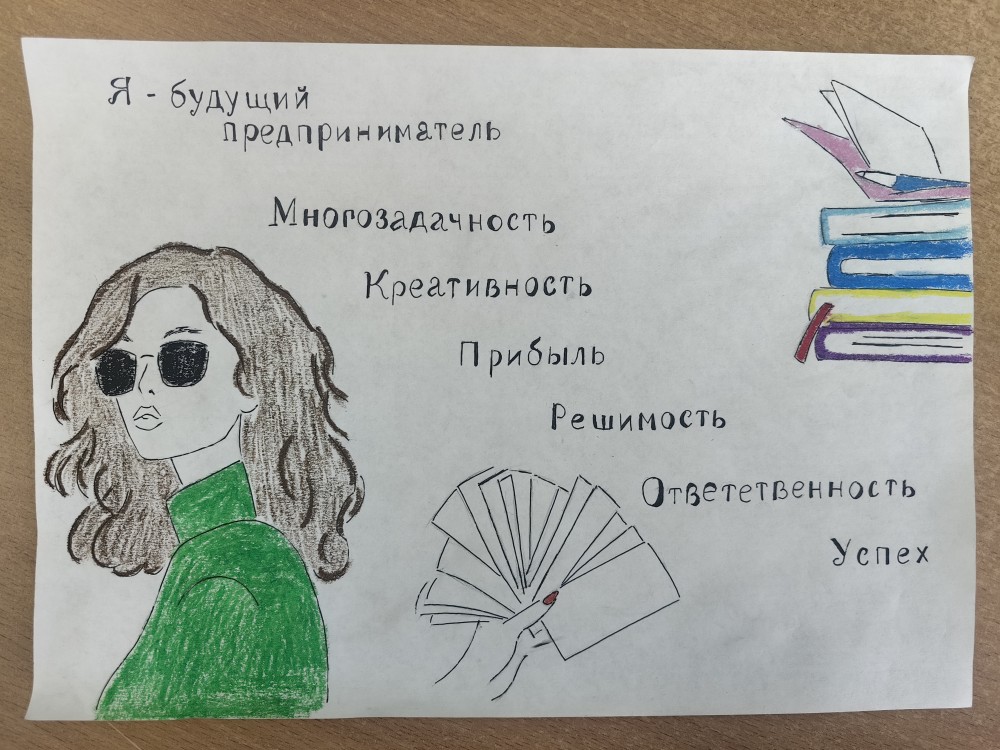 Я - будущий
предприниматель
Многозадачность
Креативность
Прибыль
Решимость
Ответетвенность
Успех